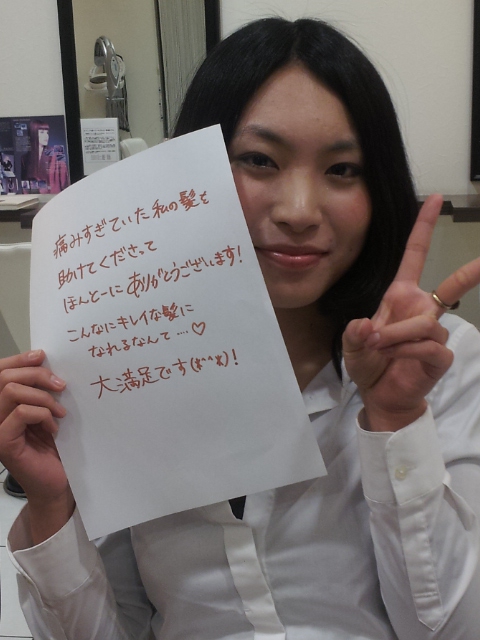 痛みすぎていた私の髪を
助けてくださって
ほんとーにありがとうございます!
こんなにキレイな髪に
なれるなんて....♡
大満足です(*^^*)!